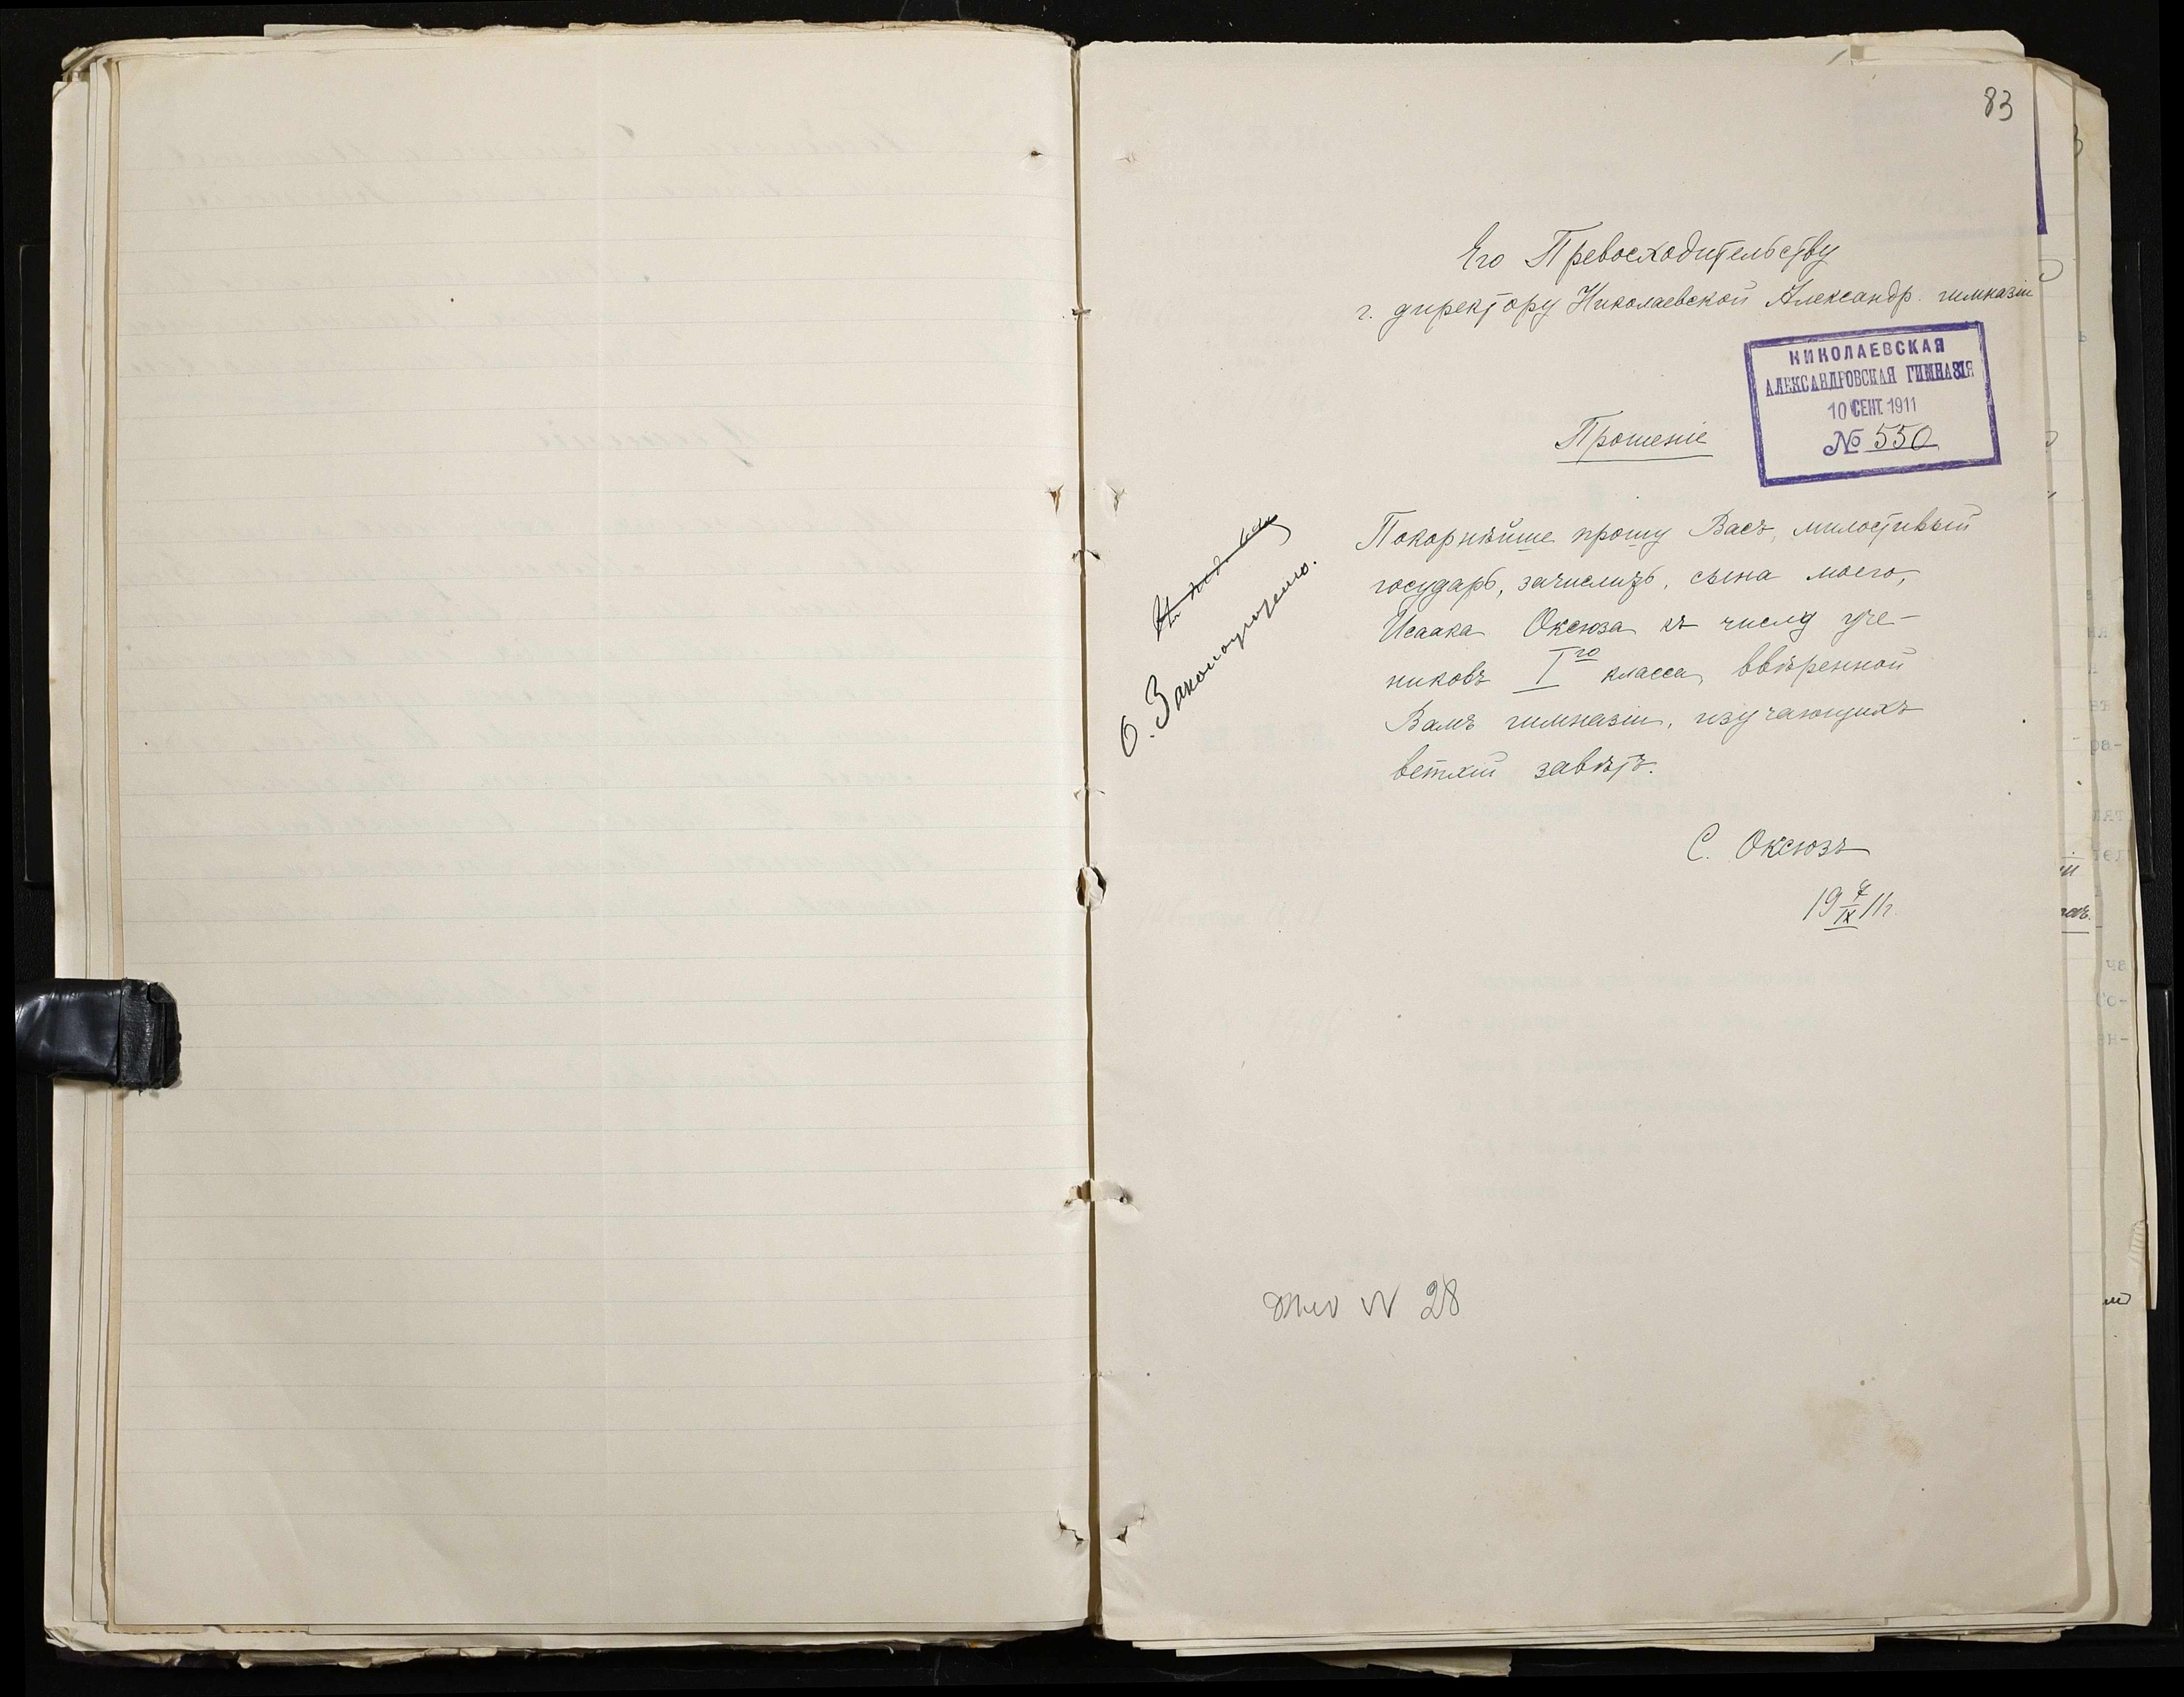 83
Его Превосходительству
г. директору Николаевской Александр. гимназіи
НИКОЛАЕВСКАЯ
АЛЕКСАНДРОВСКАЯ ГИМНАЗІЯ
10 СЕНТ. 1911
№ 550
Прошеніе
Покорнѣйше прошу Васъ, милостивый
государь, зачислить, сына моего,
Исаака Оксюза къ числу уче-
никовъ I го класса, ввѣренной
Вамъ гимназіи, изучающихъ
ветхій завѣтъ.
С. Оксюзъ
19 7/IX 11 г.
О. Законоучителю.
дѣло N 28